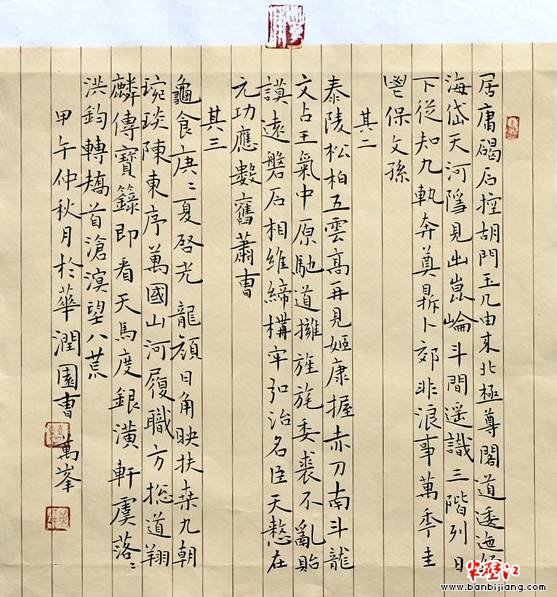 居庸碣石控胡門玉几由來北極尊閣道逶迤
海岱天河隱見出崑崙斗間遥識三階列日
下從知九軌奔奠鼎卜郊非浪事萬季圭
鬯保文孫
其二
泰陵松柏五雲高再見姬康握赤刀南斗龍
文占王氣中原馳道擁旌旄委裘不亂貽
謨遠磐石相維締構牢弘治名臣天憖在
元功應數舊蕭曹
其三
龜食庚〻夏啓光龍顔日角映扶桑九朝
琬琰陳東序萬國山河履職方總道翔
麟傳寶籙即看天馬度銀潢軒虞落〻
洪鈞轉矯首滄溟望八荒
甲午仲秋月於華潤園曹萬峯
半壁江
www.banbijiang.com